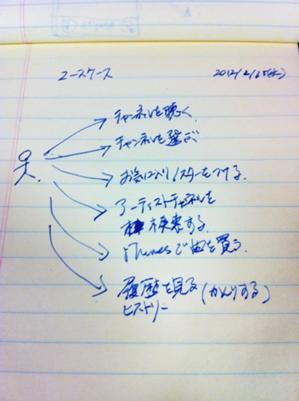 ユースケース 2012/2/15(水)
チャンネルを聴く
チャンネルを選ぶ
お気に入り/スターをつける。
アーティストチャンネルを
検索する。
iTunesで曲を買る。
履歴を見る(かんりする)
ヒストリー